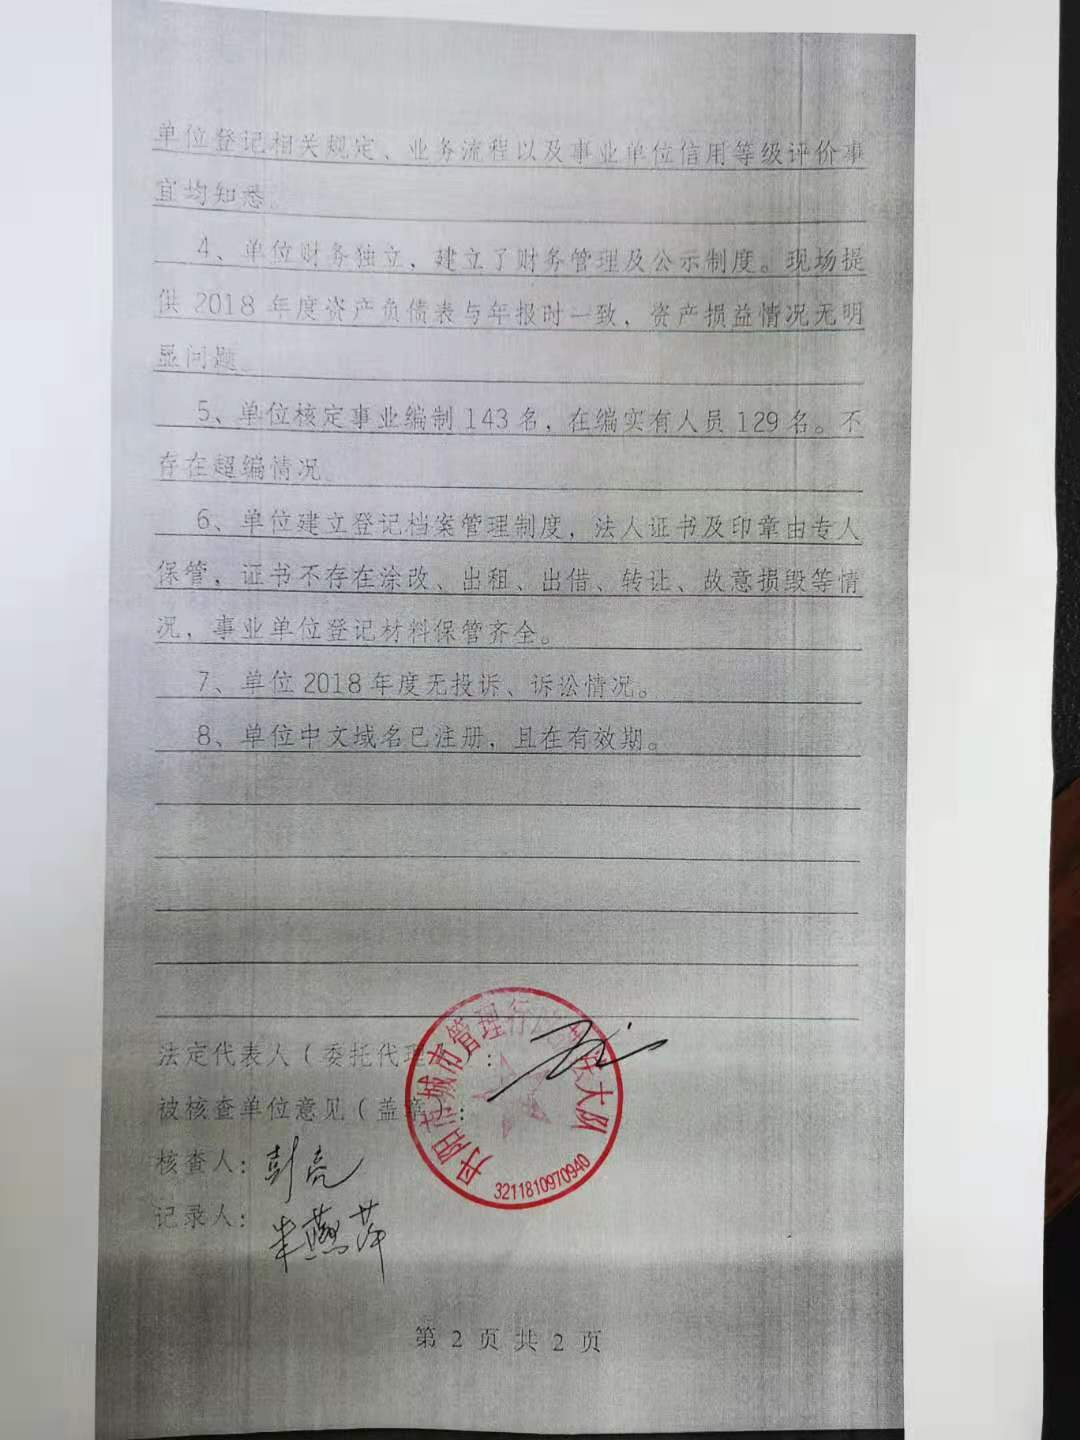 单位登记相关规定、业务流程以及事业单位信用等级评价事
宜均知悉。
4、单位财务独立，建立了财务管理及公示制度。现场提
供 2018 年度资产负债表与年报时一致，资产损益情况无明
显问题。
5、单位核定事业编制 143 名，在编实有人员 129 名。不
存在超编情况。
6、单位建立登记档案管理制度，法人证书及印章由专人
保管，证书不存在涂改、出租、出借、转让、故意损毁等情
况，事业单位登记材料保管齐全。
7、单位 2018 年度无投诉、诉讼情况。
8、单位中文域名已注册，且在有效期。
法定代表人（委托代理）：
被核查单位意见（盖章）：
丹阳市城市管理行法大队
3211810970940
核查人：彭亮
记录人：
第 2 页 共 2 页